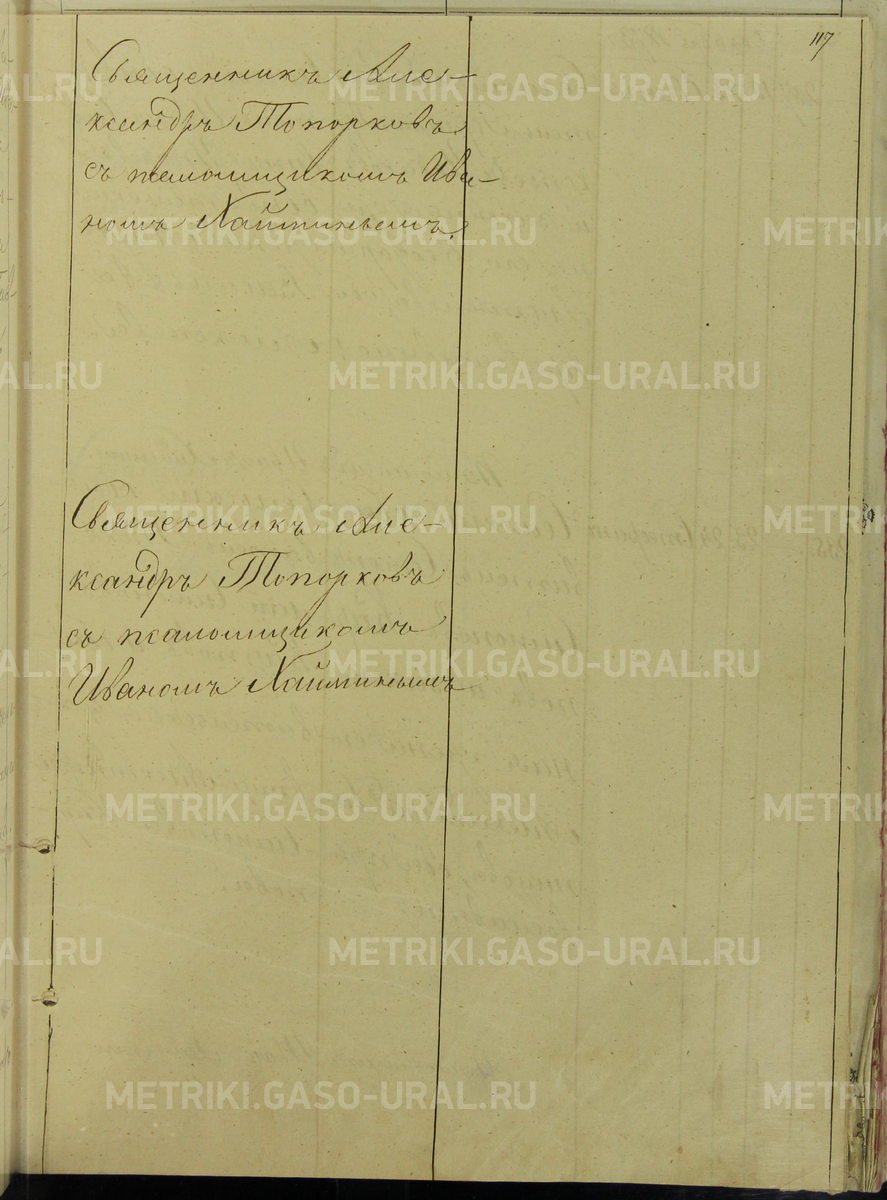 117
Священникъ Але-
ксандръ Топорковъ
съ псаломщикомъ Ива-
номъ Хайминымъ.
Священникъ Але-
ксандръ Топорковъ
съ псаломщикомъ
Иваномъ Хайминымъ
METRIKI.GASO-URAL.RU